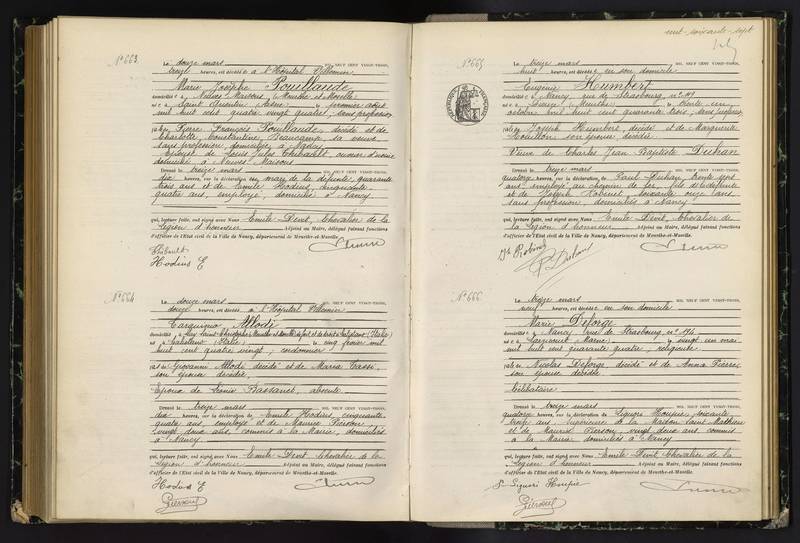 Nº 663.
Le douze mars MIL NEUF CENT VINGT-TROIS,
treize heures, est décédée à l'Hôpital Villemin
Marie Josèphe Pouillaude
domiciliée à Neuves Maisons (Meurthe et Moselle)
née à Saint Quentin (Aisne) le premier août
mil huit cent quatre vingt quatre, sans profession
fille de Pierre François Pouillaude, décédé et de
Charlotte Constantine Beaucamp sa veuve
sans profession, domiciliée à
Epouse de Louis Jules Thibault, ouvrier d'usine
domicilié à Neuves Maisons
Dressé le treize mars MIL NEUF CENT VINGT-TROIS,
dix heures, sur la déclaration du mari de la défunte, quarante
trois ans et de Emile Hodius, cinquante
quatre ans, employé, domicilié à Nancy
qui, lecture faite, ont signé avec Nous Emile Divit, Chevalier de la
Légion d'honneur Adjoint au Maire, délégué faisant fonctions
d'officier de l'Etat civil de la Ville de Nancy, département de Meurthe-et-Moselle.
Thibault
Hodius E
Nº 664
Le douze mars MIL NEUF CENT VINGT-TROIS,
douze heures, est décédé à l'Hôpital Villemin
Allodi
(Italie)
né à (Italie) le cinq février mil
huit cent quatre vingt, cordonnier
fils de Giovanni Allodi décédé et de Maria Tassi,
son épouse décédée
Epoux de Bassanet, absente
Dressé le treize mars MIL NEUF CENT VINGT-TROIS,
dix heures, sur la déclaration de Emile Hodius, cinquante
quatre ans, employé et de Maurice Pierson
vingt deux ans, commis à la Mairie, domiciliés
à Nancy
qui, lecture faite, ont signé avec Nous Emile Divit, Chevalier de la
Légion d'honneur Adjoint au Maire, délégué faisant fonctions
d'officier de l'Etat civil de la Ville de Nancy, département de Meurthe-et-Moselle.
Hodius E
cent soixante sept
Nº 665
Le douze mars MIL NEUF CENT VINGT-TROIS,
huit heures, est décédée en son domicile
Eugénie Humbert
domiciliée à Nancy, rue de Strasbourg, nº
née à (Meurthe) le trente un
octobre mil huit cent quarante trois, sans profession
fille de Joseph Humbert décédé et de Marguerite
son épouse décédée
Veuve de Charles Jean Baptiste
Dressé le treize mars MIL NEUF CENT VINGT-TROIS,
quatorze heures, sur la déclaration de Paul trente
ans, employé au chemin de fer, fils de la défunte
et de Joseph soixante onze ans,
sans profession, domiciliés à Nancy
qui, lecture faite, ont signé avec Nous Emile Divit, Chevalier de
la Légion d'honneur Adjoint au Maire, délégué faisant fonctions
d'officier de l'Etat civil de la Ville de Nancy, département de Meurthe-et-Moselle.
Nº 666
Le treize mars MIL NEUF CENT VINGT-TROIS,
neuf heures, est décédée en son domicile
Marie Deforge
domiciliée à Nancy rue de Strasbourg, nº
née à (Marne) le vingt un mai
mil huit cent quarante quatre, religieuse
fille de Nicolas Deforge décédé et de Anna Pierre
son épouse décédée
Célibataire
Dressé le treize mars MIL NEUF CENT VINGT-TROIS,
quatorze heures, sur la déclaration de Liguori Houpie, soixante
ans, supérieure de la Maison Saint Mathieu
et de Maurice Pierson, vingt deux ans, commis
à la Mairie domiciliés à Nancy
qui, lecture faite, ont signé avec Nous Emile Divit Chevalier de la
Légion d'honneur Adjoint au Maire, délégué faisant fonctions
d'officier de l'Etat civil de la Ville de Nancy, département de Meurthe-et-Moselle.
Sr Liguori Houpie